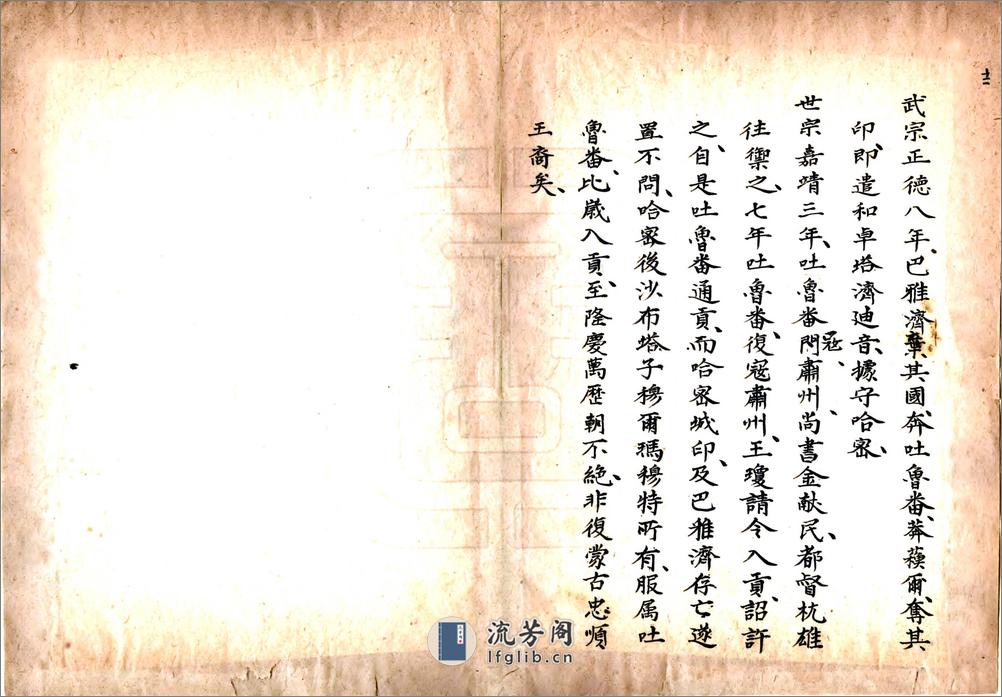 武宗正德八年、巴雅濟棄其國、奔吐魯番、莽蘓爾、奪其
印、即遣和卓塔濟迪音、據守哈密、
世宗嘉靖三年、吐魯番閂肅州、尚書金献民、都督杭雄
寇、
往禦之、七年吐魯番、復寇肅州、王瓊請令入貢、詔許
之、自是吐魯番通貢、而哈密城印、及巴雅濟存亡遂
置不問、哈密後沙布塔子穆爾瑪穆特所有、服属吐
魯番、比嵗入貢、至隆慶萬歷朝不絶、非復蒙古忠順
王裔矣、
流芳阁
lfglib.cn